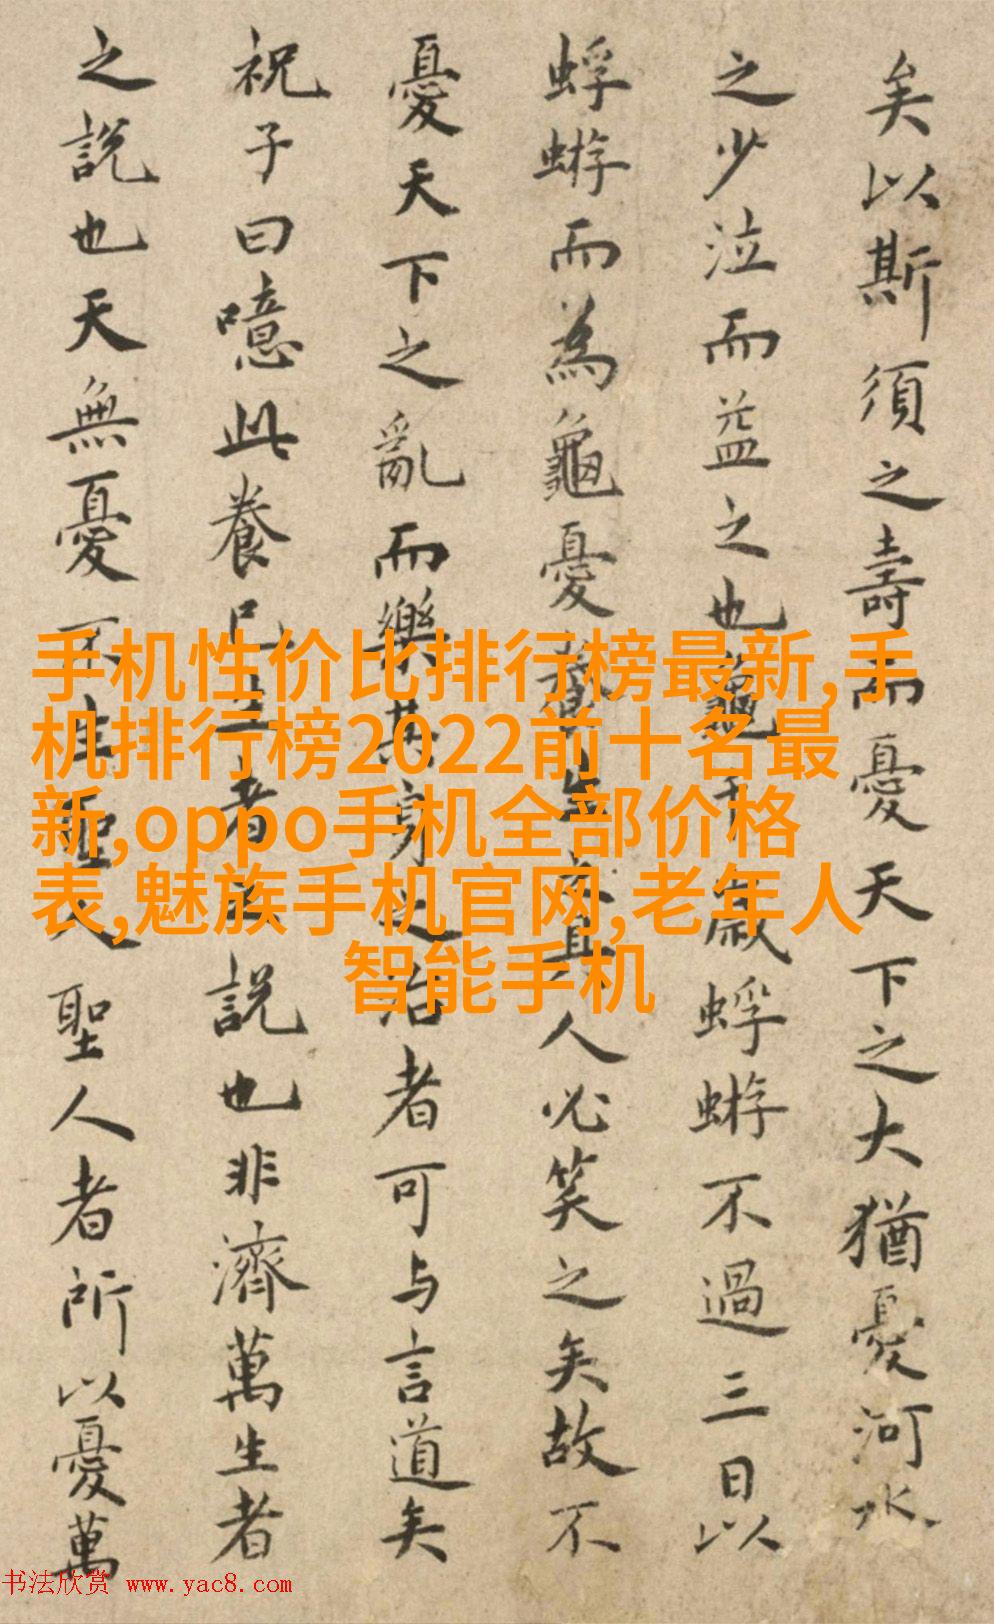 矣以斯須之壽而憂天下之大猶憂河水
之少泣而益之也龜千歲蜉蝣不過三日以
蜉蝣而為龜憂養生之具人必笑之矣故不
憂天下之亂而樂其身之治者可与言道矣
祝子曰噫此養己生者之說也非濟萬生者
之說也天無憂不生聖人聖人者所以憂萬
手机性价比排行榜最新,手
机排行榜2022前十名最
新,oppo手机全部价格
表,魅族手机官网,老年人
智能手机
书法欣赏 www.yac8.com